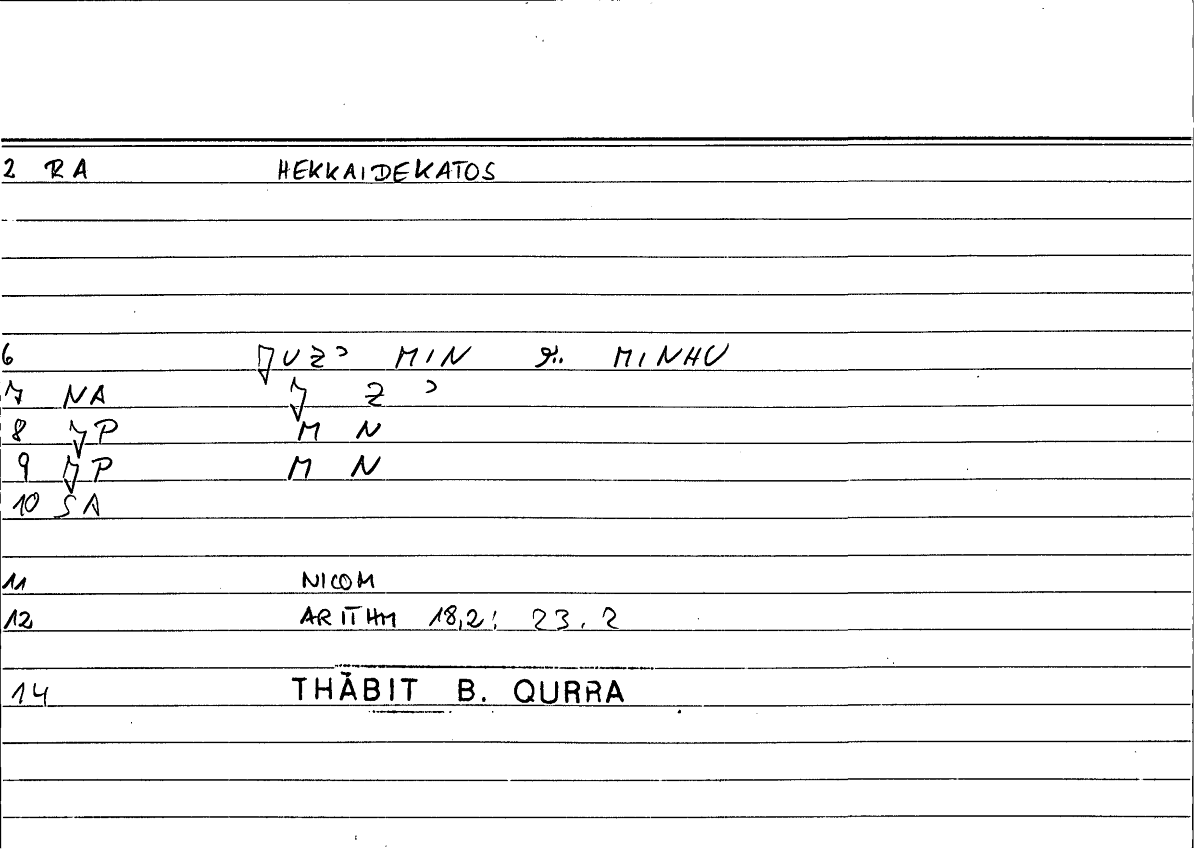 2 RA HEKKAIDEKATOS
6 ǦUZʾ MIN MINHU
7 NA Ǧ Z ʾ
8 ǦP M N
9 ǦP M N
10 SA
11 NICOM
12 ARITHM 18,2; 23.2
14 THĀBIT B. QURRA